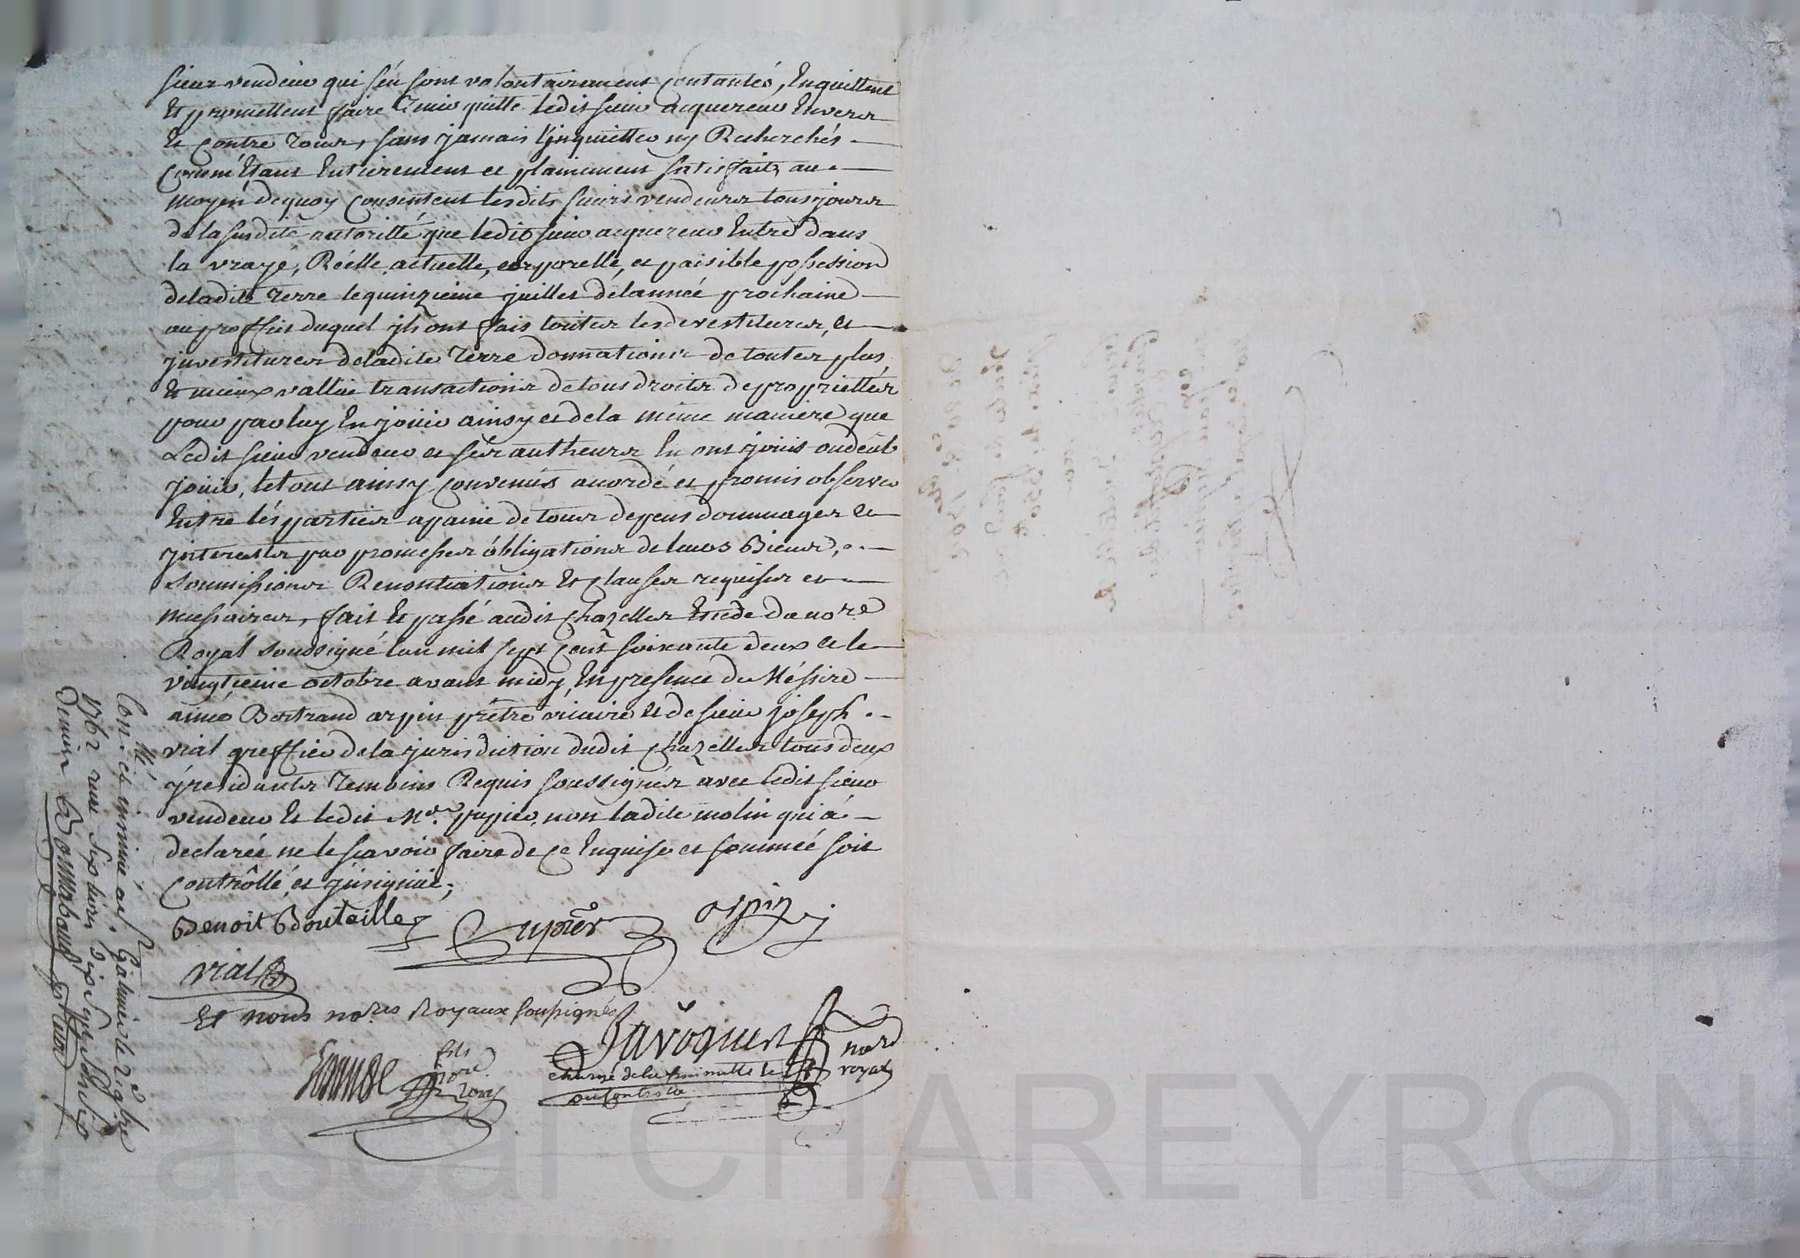 sieur vendeur qui s'en sont volontairement contantés, Enquittent
Et promettent faire Tenir quitte ledit sieur acquereur Envers
Et contre tous, sans jamais l'inquietter ny Recherchés
Comm'Etant Entierement et plainement satisfaits au
moyen dequoy consentent lesdits sieurs vendeurs tousjours
de la susdite autorité que ledit sieur acquereur Entre dans
la vraye, Reelle, actuelle, corporelle, et paisible possession
deladite Terre le quinzieme juillet delannée prochaine
au proffit duquel ils ont fait toutes les devestitures, et
investitures deladite Terre donnations de toutes plus
et mieux vallüe transactions de tous droits de proprietter
pour par luy En jouir ainsy et dela même maniere que
Ledit sieur vendeur et ses autheurs En ont jouis ou deub
jouir, le tout ainsy convenus accordé et promis observer
Entre les parties a paine de tous depens dommages et
interests par promesses obligations de leurs Biens,
soumissions Renontiations Et clauses requises et
necessaires, fait Et passé audit chazelles Etude du no.re
Royal soussigné l'an mil sept cent soixante deux et le
vingtieme octobre avant midy, En presence de Messire
aimé Bertrand arpin prêtre vicaire et de sieur joseph
vial greffier de la jurisdiction dudit chazelles tous deux
y residants temoins Requis soussignés avec ledit sieur
vendeur Et ledit M.e pupier, non ladite molin qui a
declarée ne le scavoir faire de ce Enquise et sommée soit
Controllé et insinüé;
Benoit Bouteille pupier arpin
vial
Et nous no.res Royaux soussignés
fils Javogues no.re
no.re roy. royal
chargé de la minutte
Con. et insinué a S.t Galmier le 29 8bre
1762 reçu six livres dix sept sols six
Denier